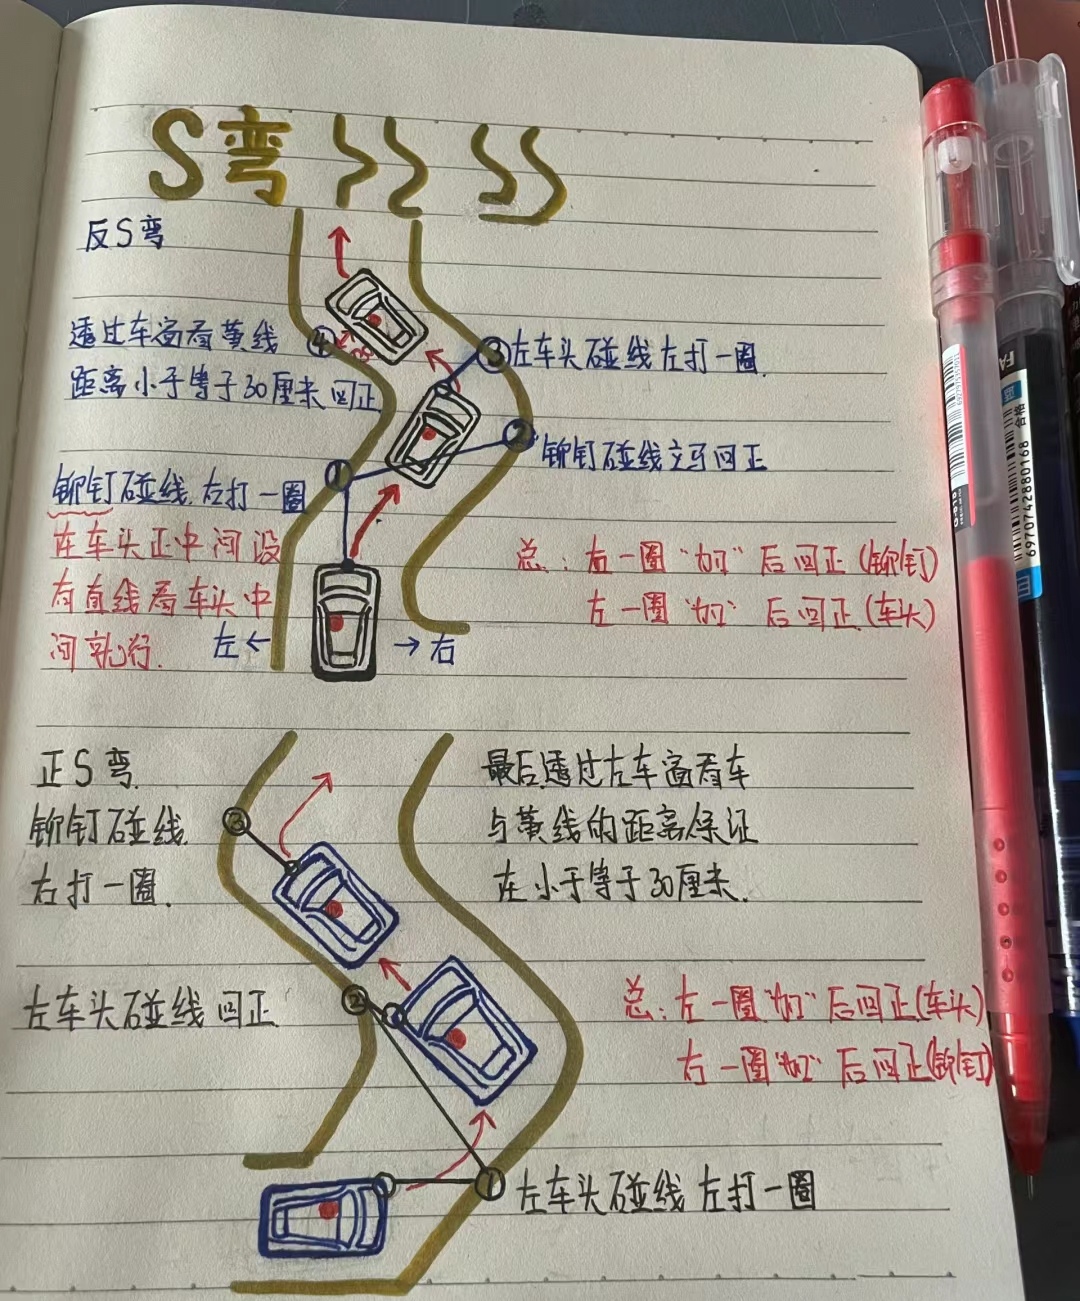 S弯
反S弯
透过车窗看黄线
距离小于等于30厘米回正
④
③左车头碰线左打一圈.
②铆钉碰线立马回正
①
铆钉碰线.右打一圈
在车头正中间没
有直线看车头中
间就行.
左← →右
总:右一圈"加"后回正(铆钉)
左一圈"加"后回正(车头)
正S弯.
铆钉碰线.
右打一圈.
③
最后透过左车窗看车
与黄线的距离保证
在小于等于30厘米.
左车头碰线回正
②
总:左一圈"加"后回正(车头)
右一圈"加"后回正(铆钉)
①左车头碰线左打一圈
合格
6970742880168